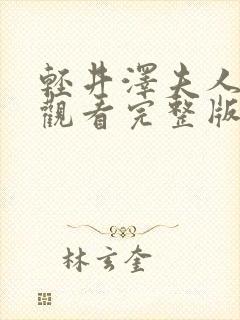 輕井澤夫人
觀看完整版
林玄奎